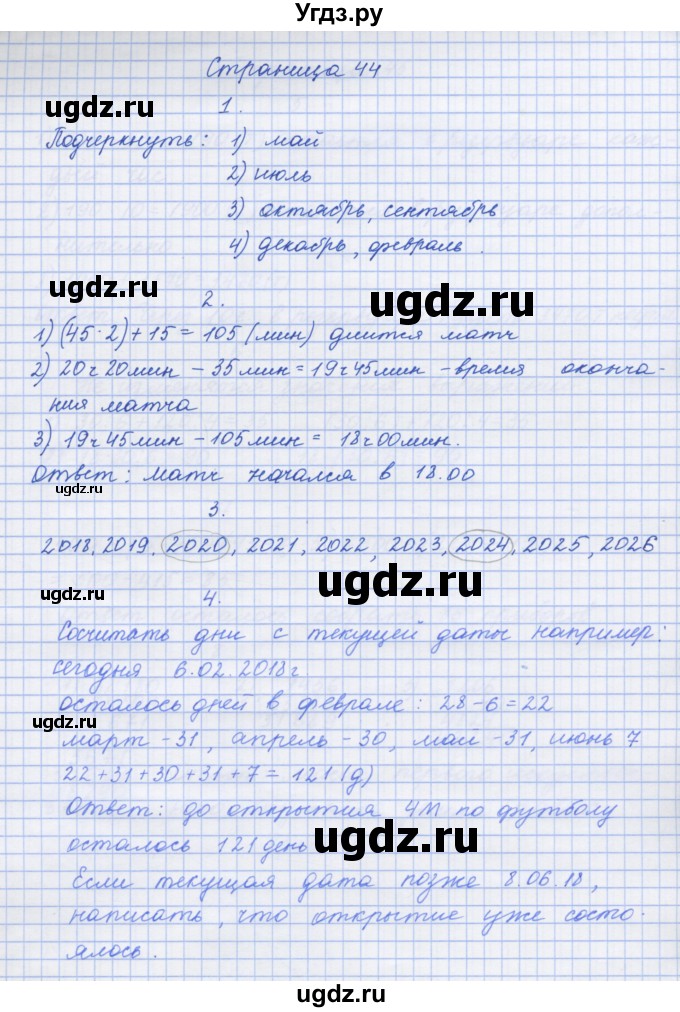 Угдз.ру
Страница 44
ugdz.ru
1.
Подчеркнуть: 1) май
2) июль
3) октябрь, сентябрь
4) декабрь, февраль.
ugdz.ru
ugdz.ru
2.
1) (45·2)+15=105 (мин) длится матч
2) 20ч 20мин - 35мин = 19ч 45мин - время оконча-
ния матча
3) 19ч 45мин - 105мин = 18ч 00мин.
Ответ: матч начался в 18.00
ugdz.ru
3.
2018, 2019, 2020, 2021, 2022, 2023, 2024, 2025, 2026
ugdz.ru
ugdz.ru
4.
Сосчитать дни с текущей даты например:
сегодня 6.02.2018г
осталось дней в феврале: 28-6=22
ugdz.ru
март -31, апрель -30, май -31, июнь 7
22+31+30+31+7=121 (д)
Ответ: до открытия ЧМ по футболу
осталось 121 день
ugdz.ru
ugdz.ru
Если текущая дата позже 8.06.18,
написать, что открытие уже состо-
ялось.
ugdz.ru
ugdz.ru